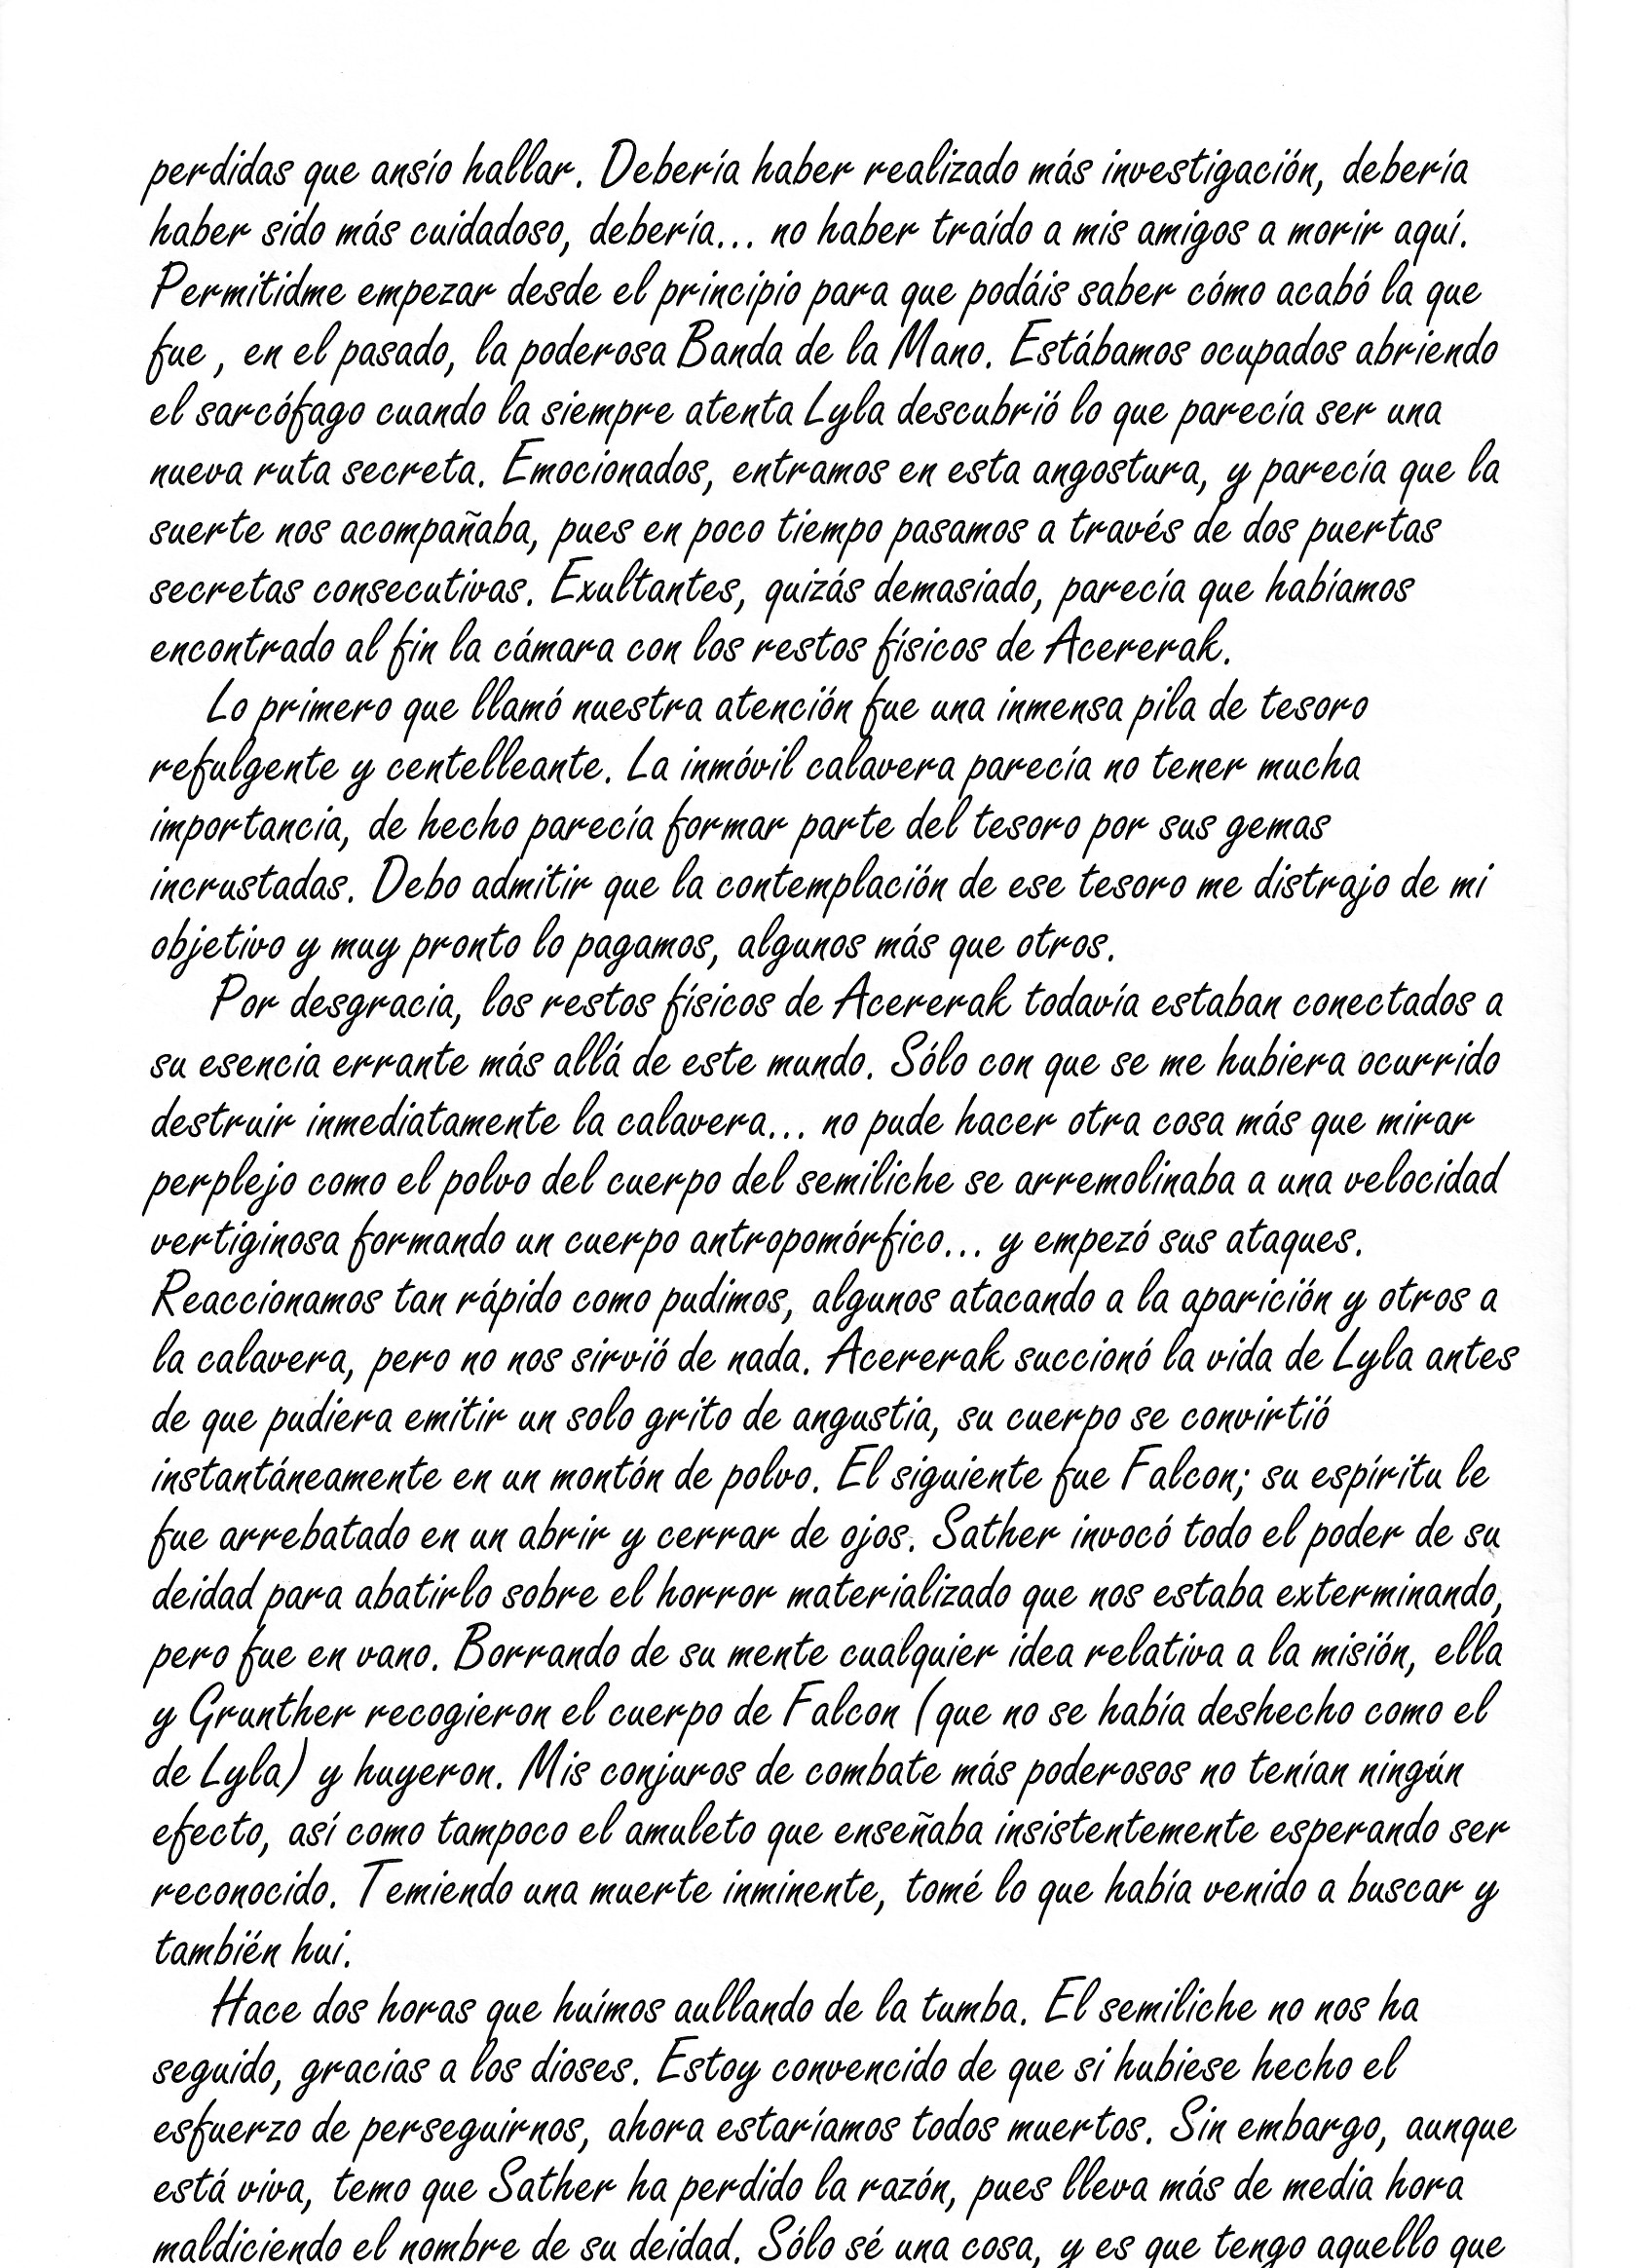 perdidas que ansío hallar. Debería haber realizado más investigación, debería
haber sido más cuidadoso, debería... no haber traído a mis amigos a morir aquí.
Permitidme empezar desde el principio para que podáis saber cómo acabó la que
fue , en el pasado, la poderosa Banda de la Mano. Estábamos ocupados abriendo
el sarcófago cuando la siempre atenta Lyla descubrió lo que parecía ser una
nueva ruta secreta. Emocionados, entramos en esta angostura, y parecía que la
suerte nos acompañaba, pues en poco tiempo pasamos a través de dos puertas
secretas consecutivas. Exultantes, quizás demasiado, parecía que habíamos
encontrado al fin la cámara con los restos físicos de Acererak.
Lo primero que llamó nuestra atención fue una inmensa pila de tesoro
refulgente y centelleante. La inmóvil calavera parecía no tener mucha
importancia, de hecho parecía formar parte del tesoro por sus gemas
incrustadas. Debo admitir que la contemplación de ese tesoro me distrajo de mi
objetivo y muy pronto lo pagamos, algunos más que otros.
Por desgracia, los restos físicos de Acererak todavía estaban conectados a
su esencia errante más allá de este mundo. Sólo con que se me hubiera ocurrido
destruir inmediatamente la calavera... no pude hacer otra cosa más que mirar
perplejo como el polvo del cuerpo del semiliche se arremolinaba a una velocidad
vertiginosa formando un cuerpo antropomórfico... y empezó sus ataques.
Reaccionamos tan rápido como pudimos, algunos atacando a la aparición y otros a
la calavera, pero no nos sirvió de nada. Acererak succionó la vida de Lyla antes
de que pudiera emitir un solo grito de angustia, su cuerpo se convirtió
instantáneamente en un montón de polvo. El siguiente fue Falcon; su espíritu le
fue arrebatado en un abrir y cerrar de ojos. Sather invocó todo el poder de su
deidad para abatirlo sobre el horror materializado que nos estaba exterminando,
pero fue en vano. Borrando de su mente cualquier idea relativa a la misión, ella
y Grunther recogieron el cuerpo de Falcon (que no se había deshecho como el
de Lyla) y huyeron. Mis conjuros de combate más poderosos no tenían ningún
efecto, así como tampoco el amuleto que enseñaba insistentemente esperando ser
reconocido. Temiendo una muerte inminente, tomé lo que había venido a buscar y
también hui.
Hace dos horas que huímos aullando de la tumba. El semiliche no nos ha
seguido, gracias a los dioses. Estoy convencido de que si hubiese hecho el
esfuerzo de perseguirnos, ahora estaríamos todos muertos. Sin embargo, aunque
está viva, temo que Sather ha perdido la razón, pues lleva más de media hora
maldiciendo el nombre de su deidad. Sólo sé una cosa, y es que tengo aquello que